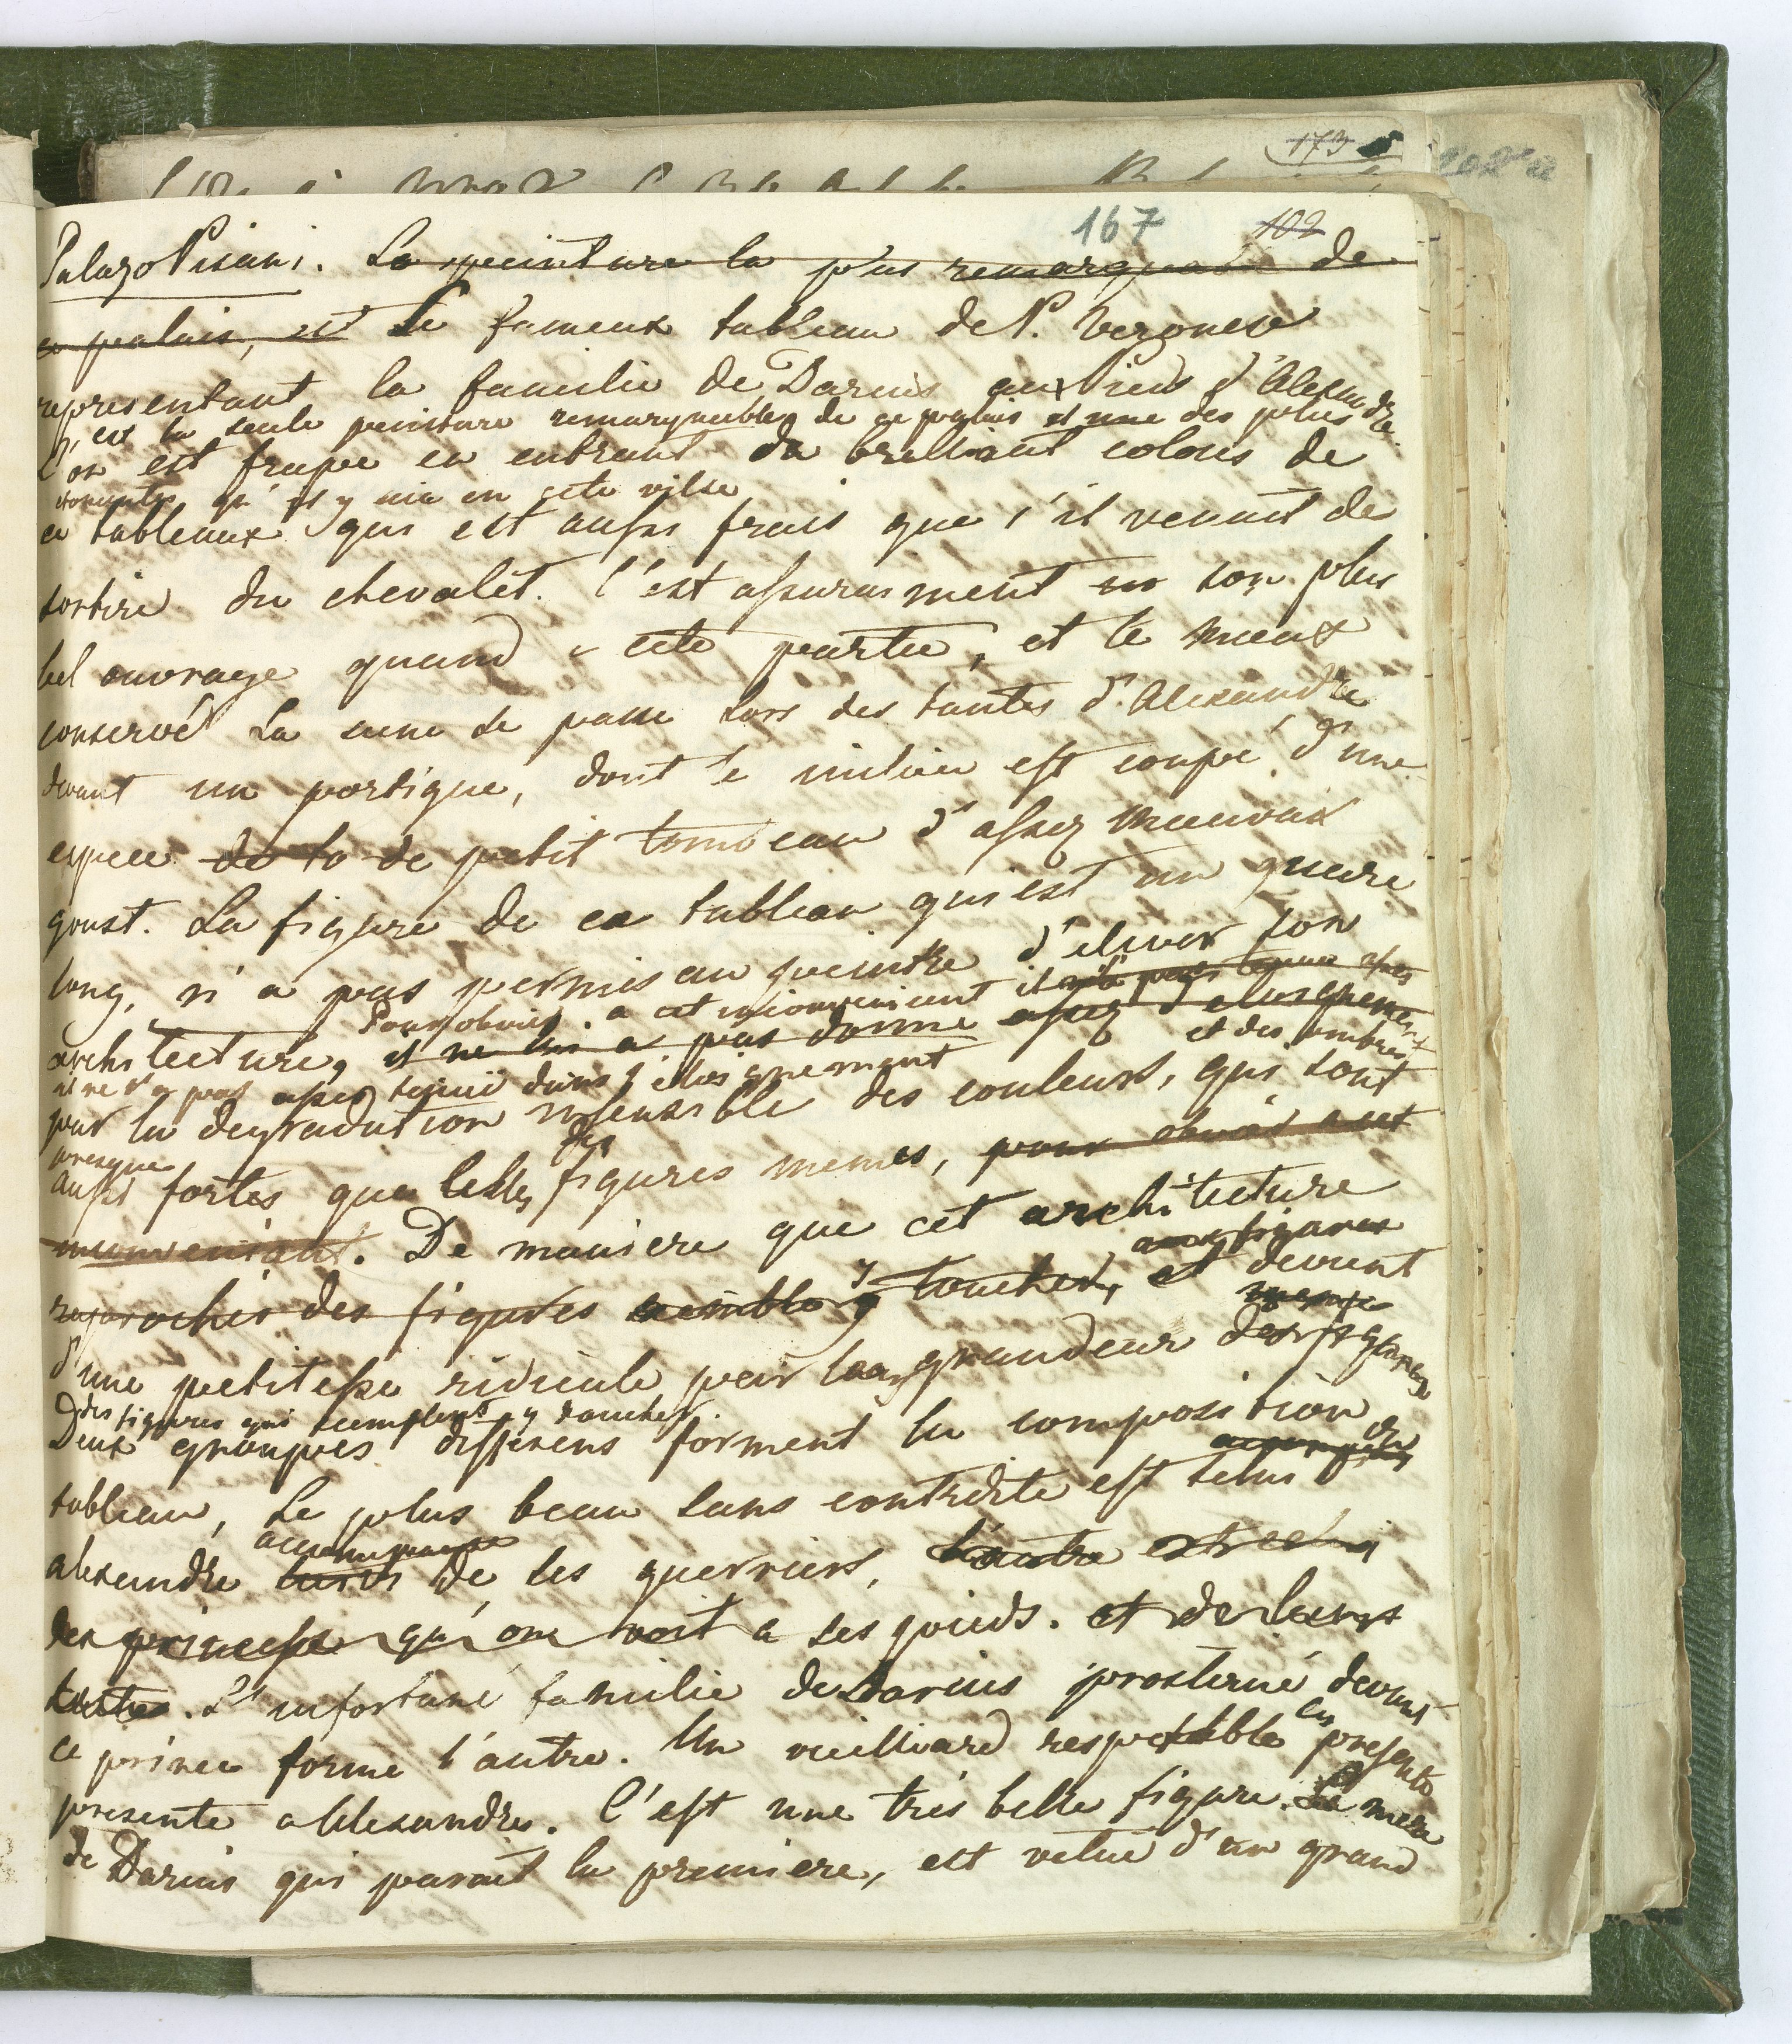 173
167 102
Palazo Pisani. La peinture la plus remarquable de
ce palais, est Le fameux tableau de P. Veronese
representant la familie de Darius aux Pieds d'Alexandre
C'est la seule peinture remarquable de ce palais et une des plus
L'on est frapé en entrant du brelliant colous de
qu'il y aie en cete ville
ce tableaux qui est aussi frais que s'il venait de
sortire du chevalet. C'est assurasment son plus
bel ouvrage quand a cete partie, et le mieux
conservé La sene se passe hors des tantes d'Alexandre
devant un portique, dont le milieu est coupé d'une
espece de to de petit tombeau d'assez mauvaix
goust. La figure de ce tableau qui est un quaré
long, n'a pas permis au peintre d'elever son
Pour obvier a cet inconvenient il n'a pas
architecture, il ne lui a pas donné assez d'eloignement
et des ombres
il ne l'a pas assez dans l'eloignement
par la degradation insensible des couleurs, qui sont
presque des
aussi fortes que celles figures memes, pour obvier a cet
inconveniant. De maniere que cet architecture
aux figures
raprochés des figures semble y toucher, et devient
meme
d'une petitesse ridicule par la grandeur des figures
des figures qui semplent y toucher.
Deux groupes differens forment la composition du
tableau, Le plus beau sans contredite est celui
accompagné
alexandre suivi de ses guerriers, L'autre est celui
des princesse qu'on voit a ses pieds. et de leurs
L'infortuné familie de Darius prosterné devant
ce prince forme l'autre. Un vielliard respectable les presente
presente a Alexandre. C'est une tres belle figure. La mere
de Darius qui parait la premiere, est vetue d'un grand